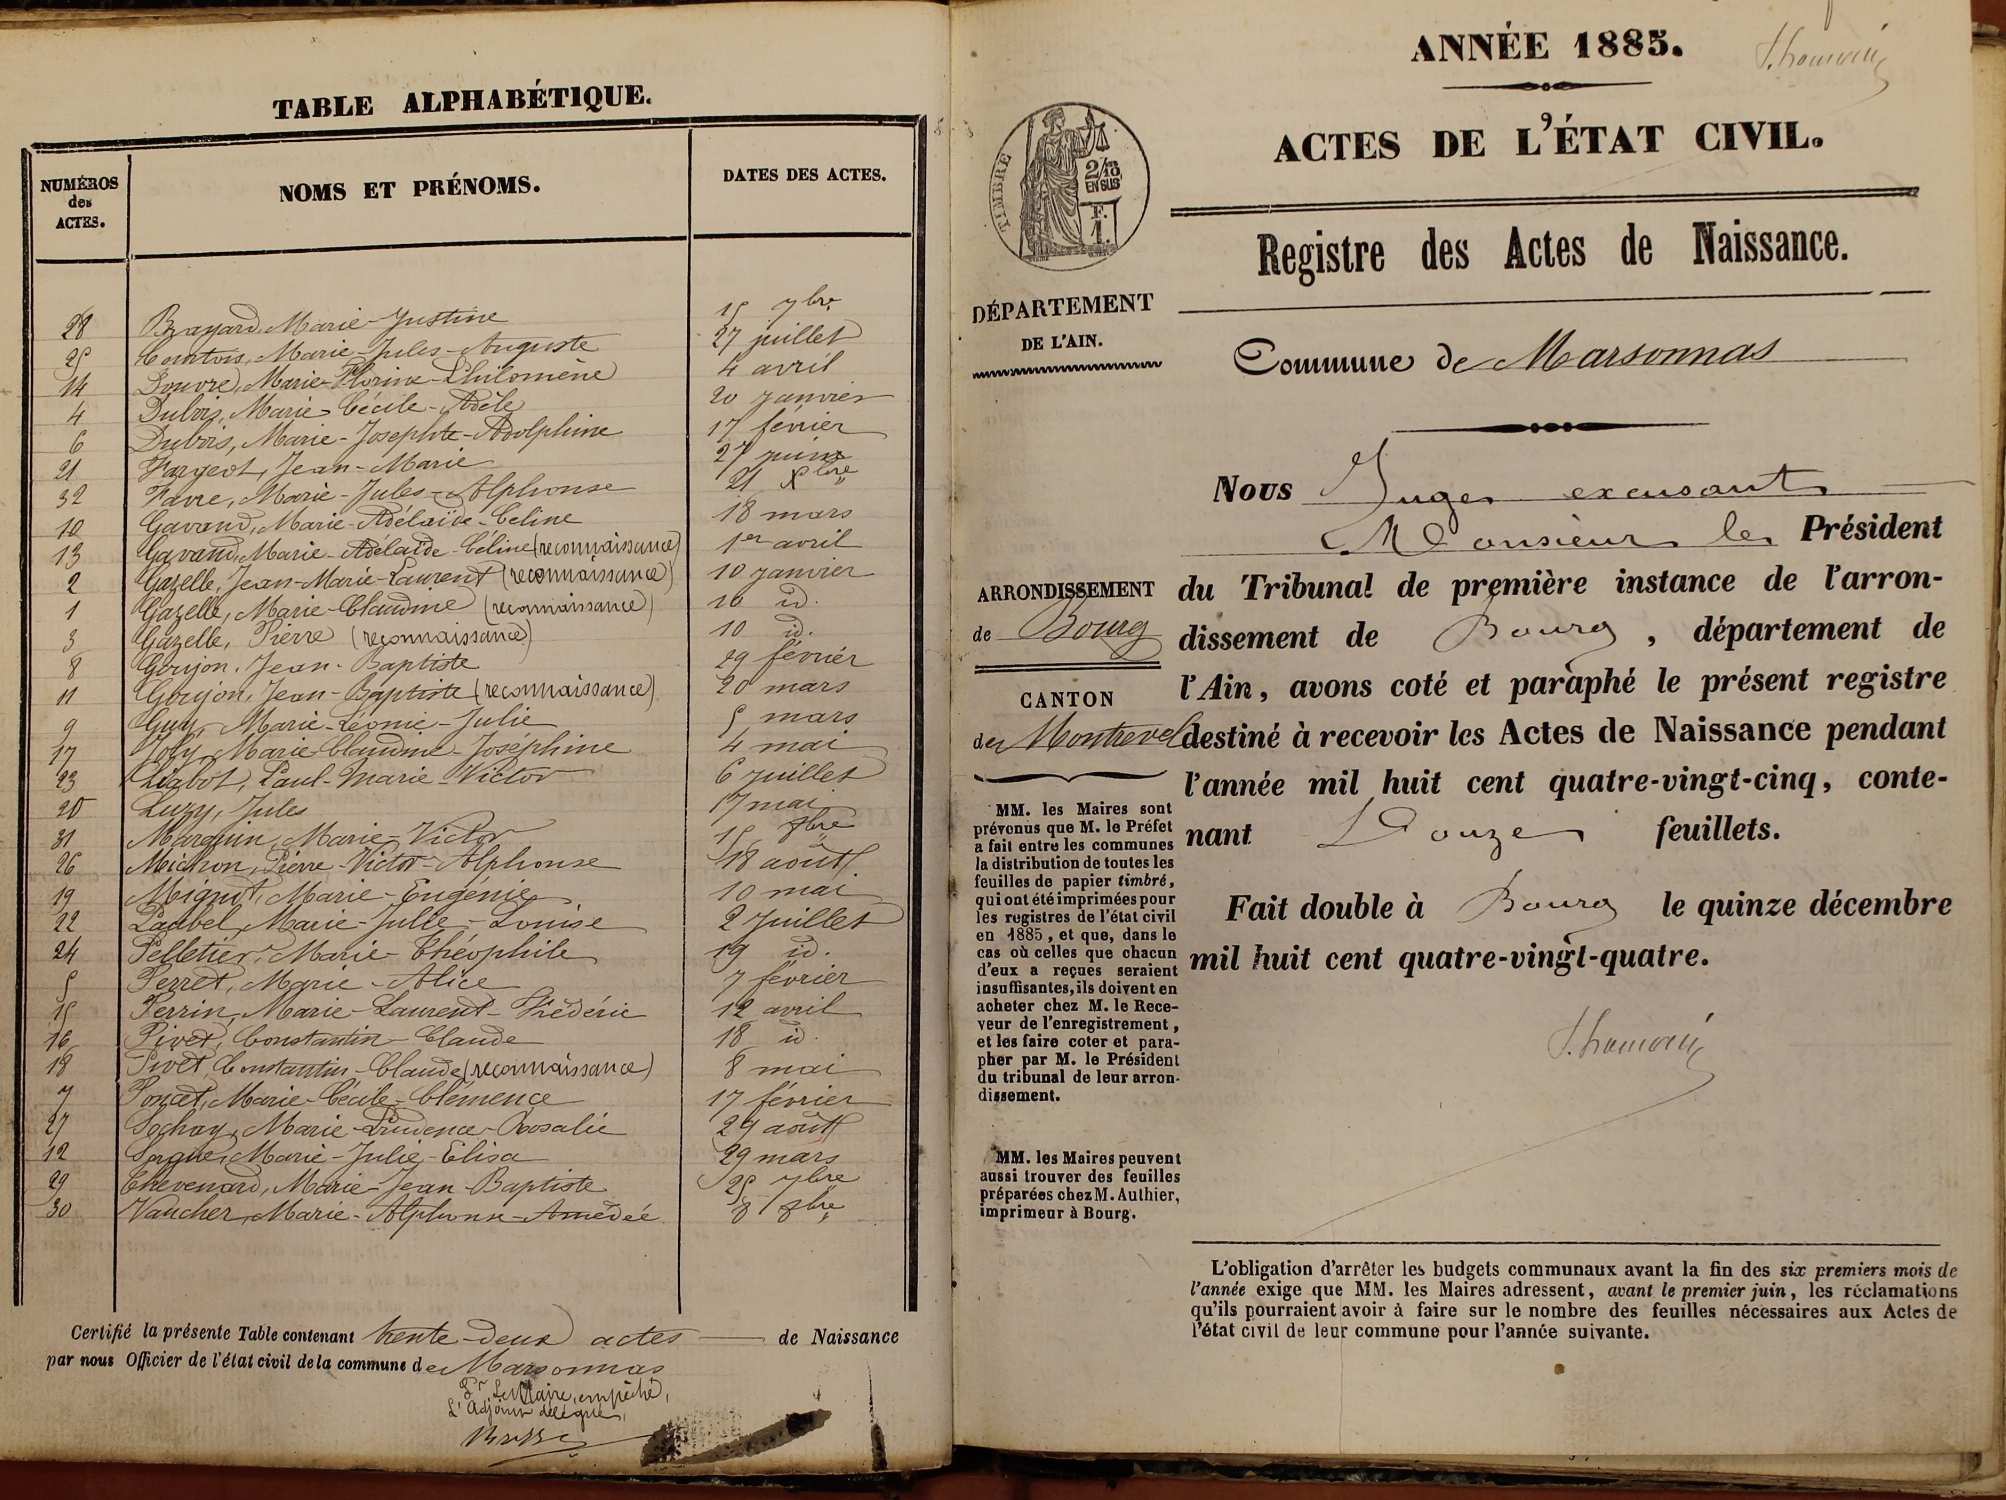 TABLE ALPHABÉTIQUE.
NUMÉROS des ACTES.
NOMS ET PRÉNOMS.
DATES DES ACTES.
28 Brayard Marie-Justine 15 7bre
25 Courtois, Marie-Jules-Auguste 27 juillet
14 Douvre, Marie-Florine-Philomène 4 avril
4 Dubois, Marie-Cécile-Adèle 20 janvier
6 Dubois, Marie-Josephte-Adolphine 17 février
21 Fargeot, Jean-Marie 27 juin
32 Favre, Marie-Jules-Alphonse 21 Xbre
10 Gavand, Marie-Adélaïde-Celine 18 mars
13 Gavand, Marie-Adélaïde-Céline (reconnaissance) 1er avril
2 Gazelle, Jean-Marie-Laurent (reconnaissance) 10 janvier
1 Gazelle, Marie-Claudine (reconnaissance) 10 id.
3 Gazelle, Pierre (reconnaissance) 10 id.
8 Goujon, Jean-Baptiste 29 février
11 Goujon, Jean-Baptiste (reconnaissance) 20 mars
9 Guy, Marie-Léonie-Julie 5 mars
17 Joly, Marie-Claudine-Joséphine 4 mai
23 Liabot, Paul-Marie-Victor 6 juillet
20 Luzy, Jules 17 mai
31 Marie-Victor 15 9bre
26 Michon, Pierre-Victor-Alphonse 18 août
19 Mignot, Marie-Eugénie 10 mai
22 Marie-Julie-Louise 2 Juillet
24 Pelletier, Marie-Théophile 19 id.
5 Perret, Marie-Alice 7 février
15 Perrin, Marie-Laurent-Frédéric 12 avril
16 Pivet, Constantin-Claude 18 id.
18 Pivet, Constantin-Claude (reconnaissance) 8 mai
7 Poncet, Marie-Cécile-Clémence 17 février
27 Sochay, Marie-Prudence-Rosalie 29 août
12 Marie-Julie-Elisa 29 mars
29 Thevenard, Marie-Jean-Baptiste 25 7bre
30 Vaucher, Marie-Alphonse-Amédée 8 9bre
Certifié la présente Table contenant trente-deux actes de Naissance
par nous Officier de l'état civil de la commune de Marsonnas
Pr Le Maire, empêché,
L'Adjoint délégué,
ANNÉE 1885.
ACTES DE L'ÉTAT CIVIL.
TIMBRE
2/10 EN SUS
F. 1.
Registre des Actes de Naissance.
DÉPARTEMENT
DE L'AIN.
Commune de Marsonnas
Nous Juge excusant
Monsieur le Président
du Tribunal de première instance de l'arron-
dissement de Bourg, département de
l'Ain, avons coté et paraphé le présent registre
destiné à recevoir les Actes de Naissance pendant
l'année mil huit cent quatre-vingt-cinq, conte-
nant Douze feuillets.
Fait double à Bourg le quinze décembre
mil huit cent quatre-vingt-quatre.
ARRONDISSEMENT
de Bourg
CANTON
de Montrevel
MM. les Maires sont
prévenus que M. le Préfet
a fait entre les communes
la distribution de toutes les
feuilles de papier timbré,
qui ont été imprimées pour
les registres de l'état civil
en 1885, et que, dans le
cas où celles que chacun
d'eux a reçues seraient
insuffisantes, ils doivent en
acheter chez M. le Rece-
veur de l'enregistrement,
et les faire coter et para-
pher par M. le Président
du tribunal de leur arron-
dissement.
MM. les Maires peuvent
aussi trouver des feuilles
préparées chez M. Authier,
imprimeur à Bourg.
L'obligation d'arrêter les budgets communaux avant la fin des six premiers mois de
l'année exige que MM. les Maires adressent, avant le premier juin, les réclamations
qu'ils pourraient avoir à faire sur le nombre des feuilles nécessaires aux Actes de
l'état civil de leur commune pour l'année suivante.